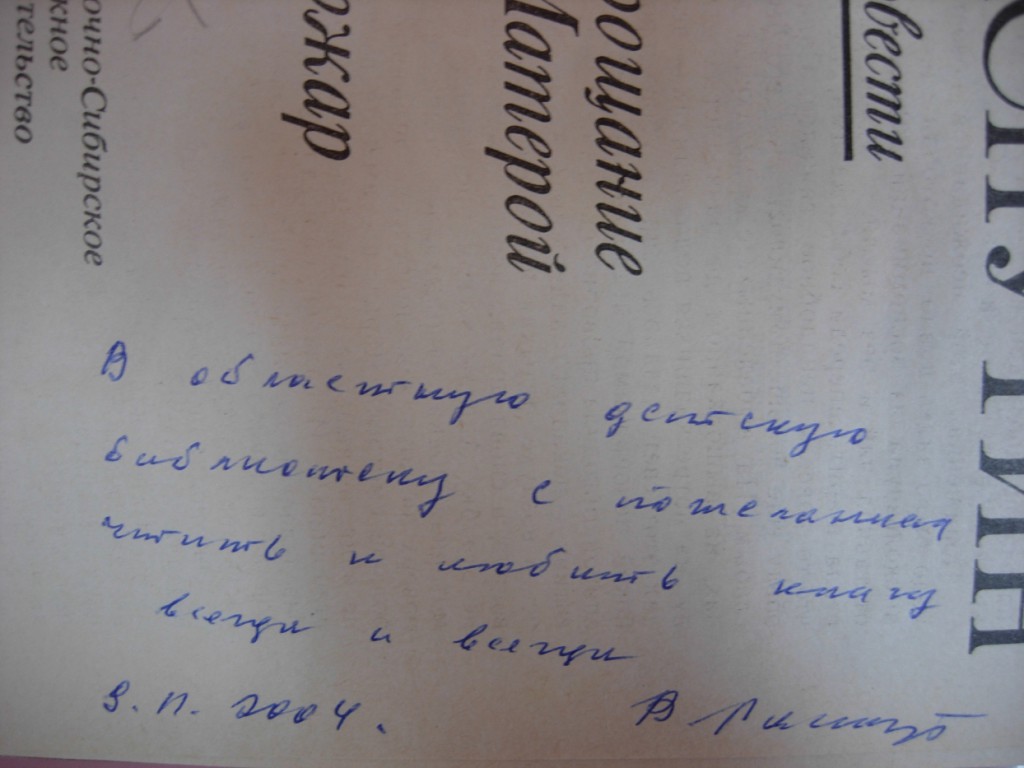 СПУТИН
овести
рощание
Матерой
ожар
очно-Сибирское
жное
тельство
В областную детскую
библиотеку с пожеланием
чтить и любить книгу
всегда и всегда
В Распут